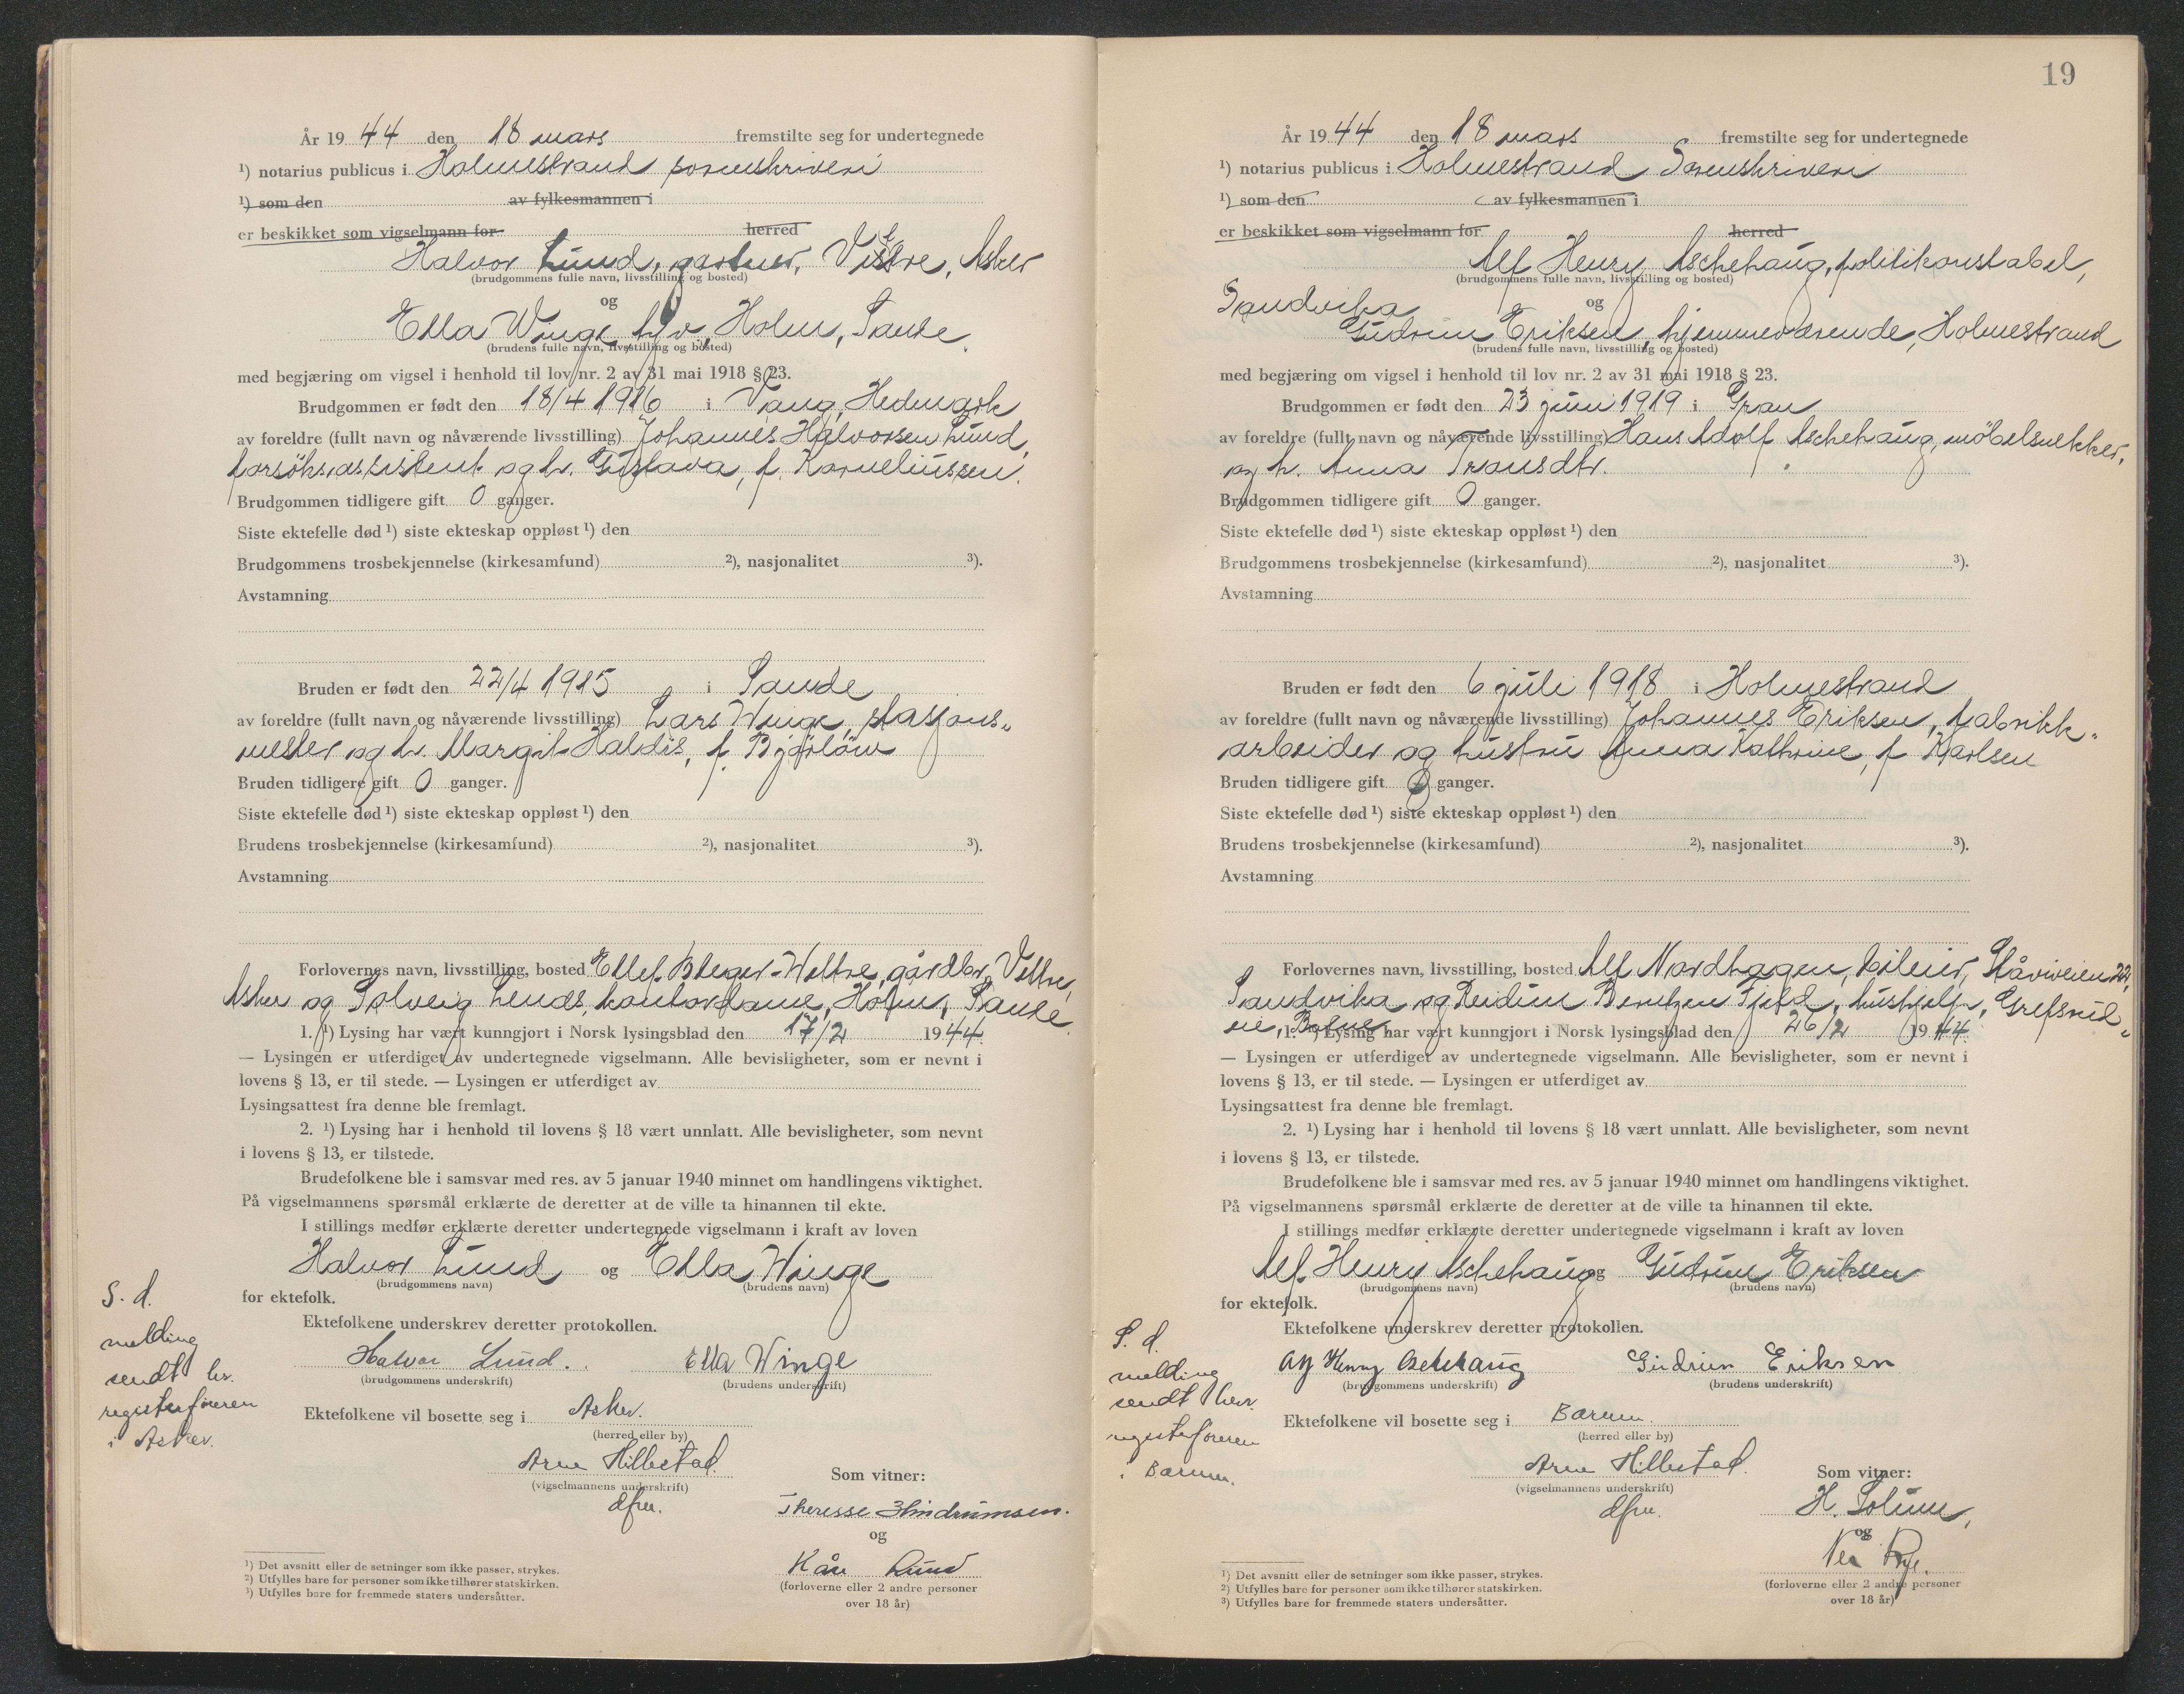 År 1944 den 18 mars fremstilte seg for undertegnede
¹) notarius publicus i Holmestrand sorenskriveri
¹) som den av fylkesmannen i
er beskikket som vigselmann for herred
Halvor Lund, gartner, Vettre, Asker
(brudgommens fulle navn, livsstilling og bosted)
og
Ella Winge, hjv., Holm, Sande.
(brudens fulle navn, livsstilling og bosted)
med begjæring om vigsel i henhold til lov nr. 2 av 31 mai 1918 § 23.
Brudgommen er født den 18/4 1916 i Vang, Hedmark
av foreldre (fullt navn og nåværende livsstilling) Johannes Halvorsen Lund,
forsöksassistent og h. Gustava, f. Korneliussen.
Brudgommen tidligere gift 0 ganger.
Siste ektefelle død ¹) siste ekteskap oppløst ¹) den
Brudgommens trosbekjennelse (kirkesamfund) ²), nasjonalitet ³).
Avstamning
Bruden er født den 22/4 1915 i Sande
av foreldre (fullt navn og nåværende livsstilling) Lars Winge, stasjons-
mester og h. Margit Haldis, f.
Bruden tidligere gift 0 ganger.
Siste ektefelle død ¹) siste ekteskap oppløst ¹) den
Brudens trosbekjennelse (kirkesamfund) ²), nasjonalitet ³).
Avstamning
Forlovernes navn, livsstilling, bosted Ellef Wettre, gårdbr, Vettre,
Asker og Solveig kontordame, Holm, Sande.
1. ¹) Lysing har vært kunngjort i Norsk lysingsblad den 17/2 1944.
— Lysingen er utferdiget av undertegnede vigselmann. Alle bevisligheter, som er nevnt i
lovens § 13, er til stede. — Lysingen er utferdiget av
Lysingsattest fra denne ble fremlagt.
2. ¹) Lysing har i henhold til lovens § 18 vært unnlatt. Alle bevisligheter, som nevnt
i lovens § 13, er tilstede.
Brudefolkene ble i samsvar med res. av 5 januar 1940 minnet om handlingens viktighet.
På vigselmannens spørsmål erklærte de deretter at de ville ta hinannen til ekte.
I stillings medfør erklærte deretter undertegnede vigselmann i kraft av loven
Halvor Lund og Ella Winge
(brudgommens navn) (brudens navn)
for ektefolk.
Ektefolkene underskrev deretter protokollen.
Halvor Lund. Ella Winge
(brudgommens underskrift) (brudens underskrift)
Ektefolkene vil bosette seg i Asker.
(herred eller by)
Arne Hillestad.
(vigselmannens underskrift)
dfm.
Som vitner:
Theresse Hindrumsen.
og
Kåre Lund
(forloverne eller 2 andre personer
over 18 år)
S. d.
melding
sendt hr.
registerføreren
i Asker.
¹) Det avsnitt eller de setninger som ikke passer, strykes.
²) Utfylles bare for personer som ikke tilhører statskirken.
³) Utfylles bare for fremmede staters undersåtter.
19
År 1944 den 18 mars fremstilte seg for undertegnede
¹) notarius publicus i Holmestrand Sorenskriveri
¹) som den av fylkesmannen i
er beskikket som vigselmann for herred
Alf Henry Aschehaug, politikonstabel,
(brudgommens fulle navn, livsstilling og bosted)
Sandvika
og
Gudrun Eriksen, hjemmeværende, Holmestrand
(brudens fulle navn, livsstilling og bosted)
med begjæring om vigsel i henhold til lov nr. 2 av 31 mai 1918 § 23.
Brudgommen er født den 23 juni 1919 i Gran
av foreldre (fullt navn og nåværende livsstilling) Hans Adolf Aschehaug, möbelsnekker,
og h. Anna Transdtr.
Brudgommen tidligere gift 0 ganger.
Siste ektefelle død ¹) siste ekteskap oppløst ¹) den
Brudgommens trosbekjennelse (kirkesamfund) ²), nasjonalitet ³).
Avstamning
Bruden er født den 6 juli 1918 i Holmestrand
av foreldre (fullt navn og nåværende livsstilling) Johannes Eriksen, fabrikk-
arbeider og hustru Anna Kathrine, f Karlsen
Bruden tidligere gift 0 ganger.
Siste ektefelle død ¹) siste ekteskap oppløst ¹) den
Brudens trosbekjennelse (kirkesamfund) ²), nasjonalitet ³).
Avstamning
Forlovernes navn, livsstilling, bosted Alf Nordhagen, bileier, 22,
Sandvika og Reidun Berntzen hushjelp, Grefsrud-
ie, Botne.
1. ¹) Lysing har vært kunngjort i Norsk lysingsblad den 26/2 1944.
— Lysingen er utferdiget av undertegnede vigselmann. Alle bevisligheter, som er nevnt i
lovens § 13, er til stede. — Lysingen er utferdiget av
Lysingsattest fra denne ble fremlagt.
2. ¹) Lysing har i henhold til lovens § 18 vært unnlatt. Alle bevisligheter, som nevnt
i lovens § 13, er tilstede.
Brudefolkene ble i samsvar med res. av 5 januar 1940 minnet om handlingens viktighet.
På vigselmannens spørsmål erklærte de deretter at de ville ta hinannen til ekte.
I stillings medfør erklærte deretter undertegnede vigselmann i kraft av loven
Alf Henry Aschehaug og Gudrun Eriksen
(brudgommens navn) (brudens navn)
for ektefolk.
Ektefolkene underskrev deretter protokollen.
Alf Henry Aschehaug Gudrun Eriksen
(brudgommens underskrift) (brudens underskrift)
Ektefolkene vil bosette seg i Bærum.
(herred eller by)
Arne Hillestad.
(vigselmannens underskrift)
dfm.
Som vitner:
H. Solum,
og
Per Rye.
(forloverne eller 2 andre personer
over 18 år)
S. d.
melding
sendt herr
registerføreren
i Bærum.
¹) Det avsnitt eller de setninger som ikke passer, strykes.
²) Utfylles bare for personer som ikke tilhører statskirken.
³) Utfylles bare for fremmede staters undersåtter.